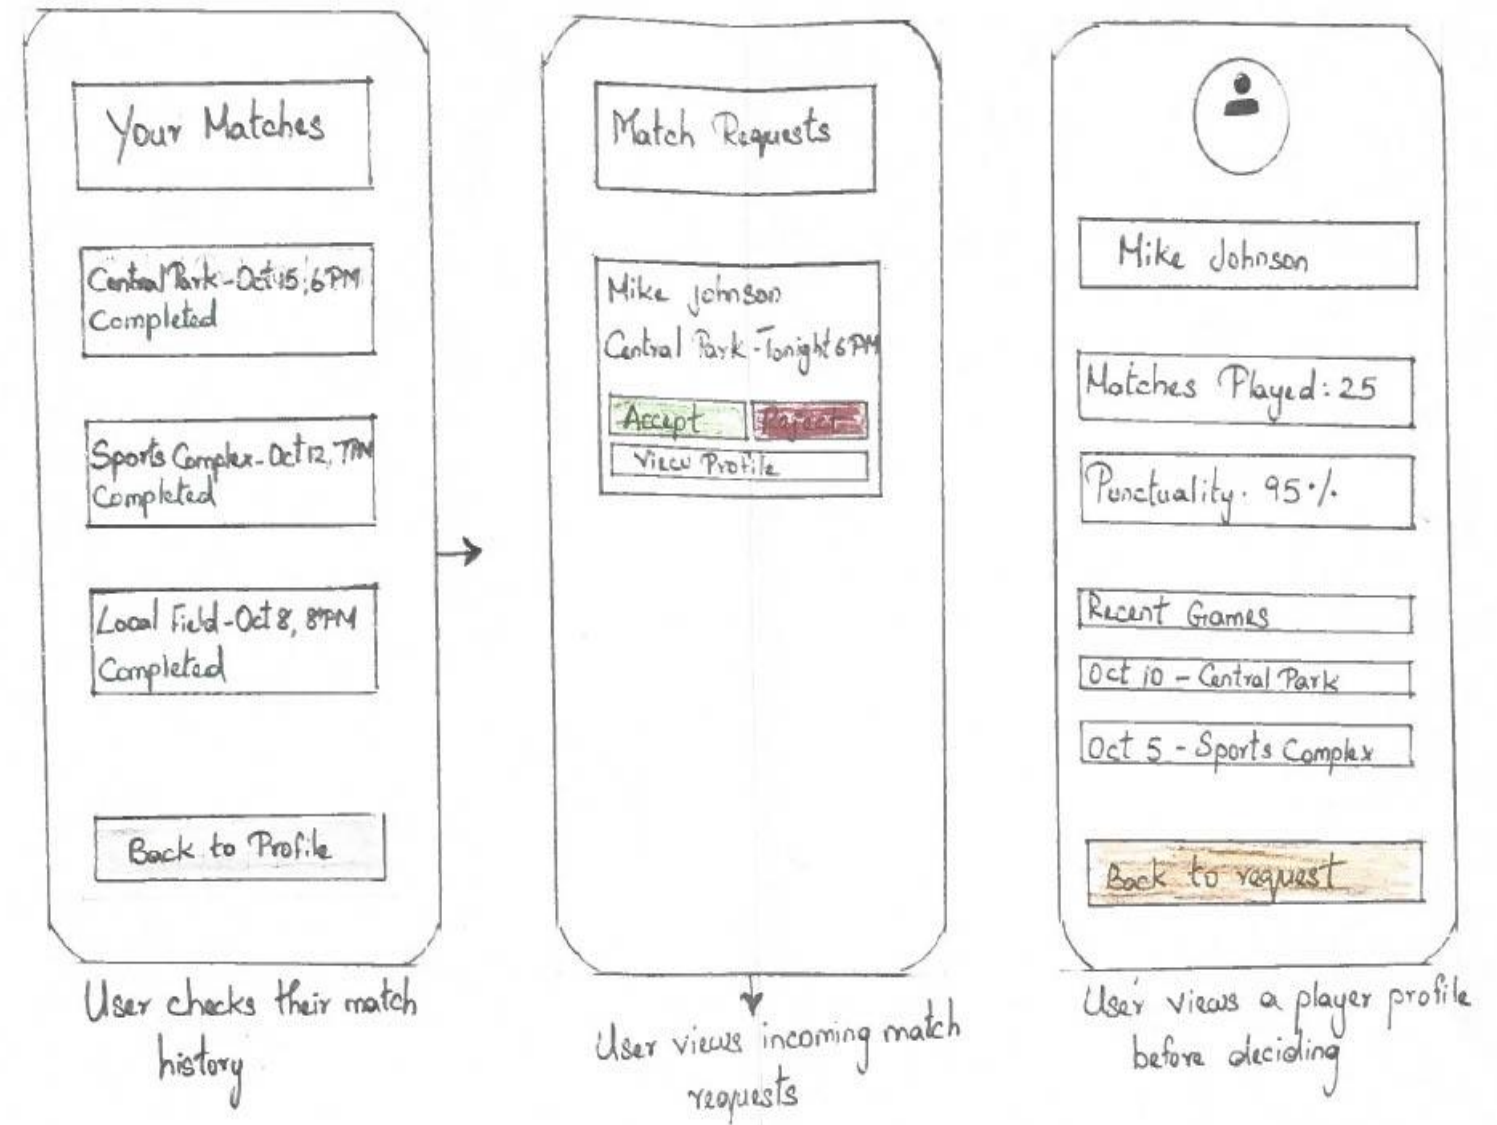 Your Matches
Central Park - Oct 15, 6PM
Completed
Sports Complex - Oct 12, 7PM
Completed
Local Field - Oct 8, 8PM
Completed
Back to Profile
User checks their match
history
Match Requests
Mike Johnson
Central Park - Tonight 6 PM
Accept
Reject
View Profile
User views incoming match
requests
Mike Johnson
Matches Played: 25
Punctuality. 95%
Recent Games
Oct 10 - Central Park
Oct 5 - Sports Complex
Back to request
User views a player profile
before deciding